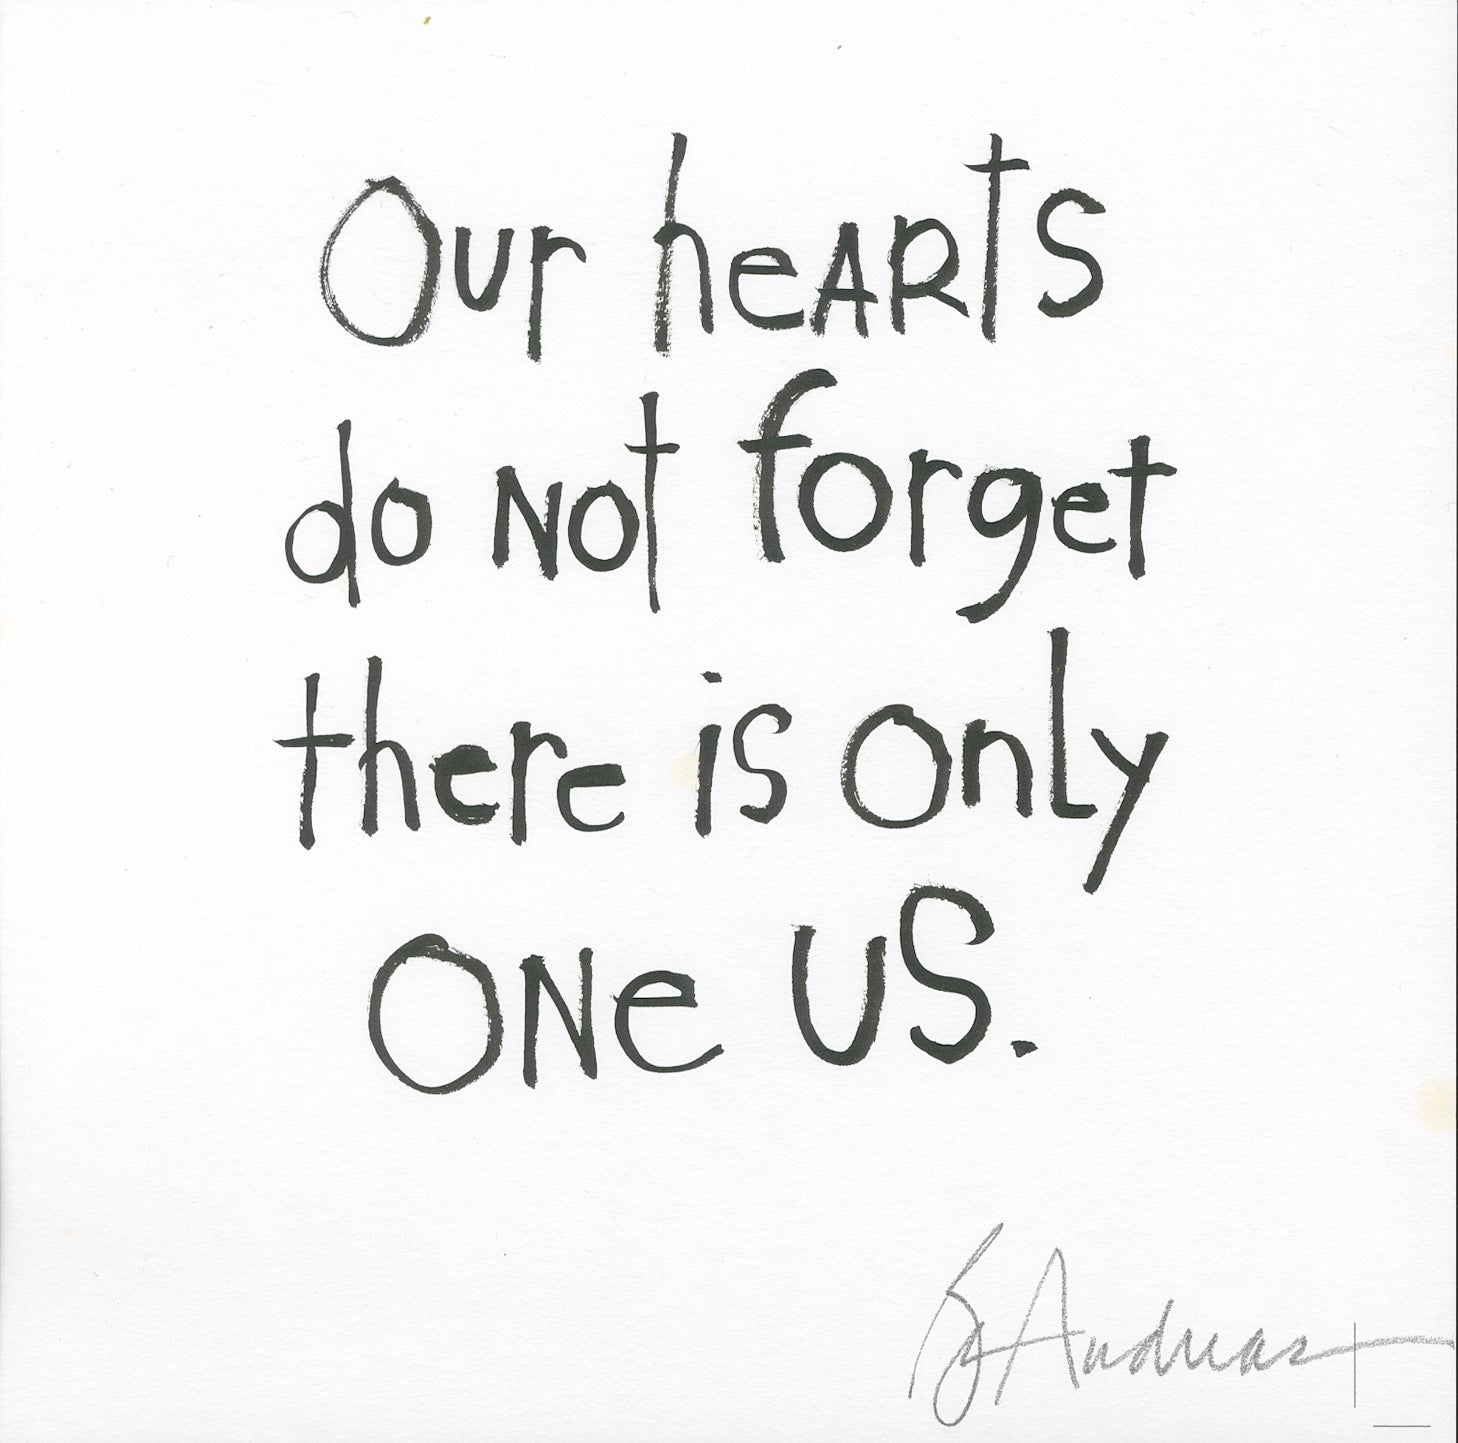 Our heARTS
do NOT forget
there is only
ONe US.
By Andreas